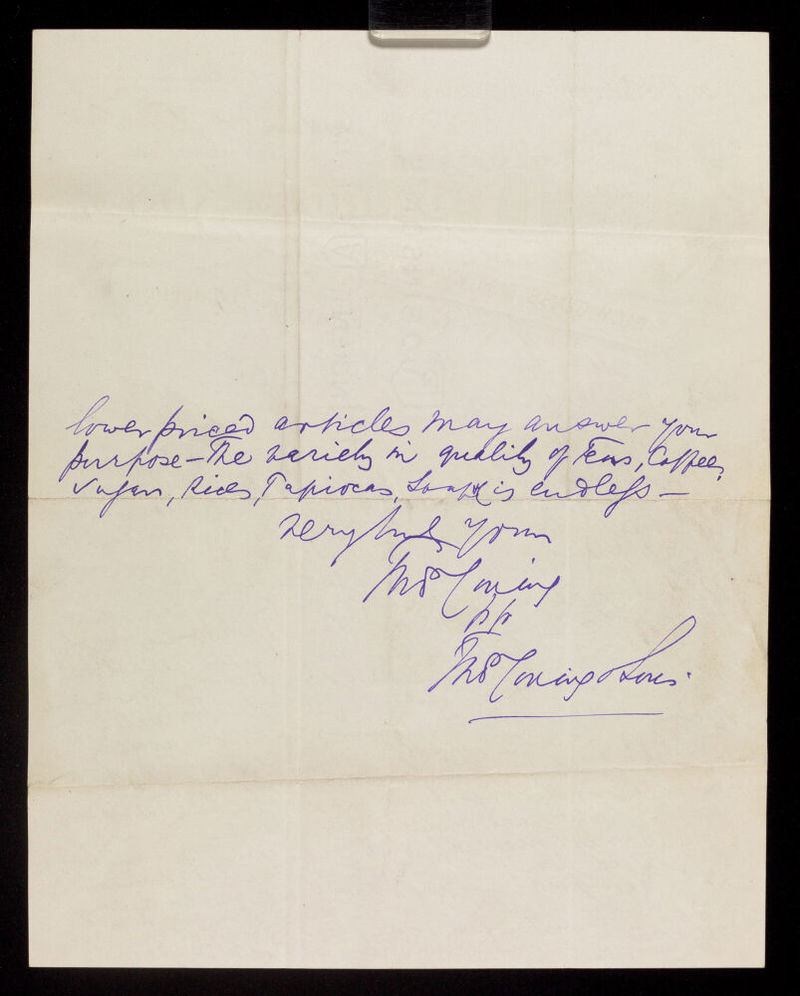 lower priced articles may answer your
purpose – The variety in quality of Teas, Coffees,
Sugars, Rices, Tapiocas, Soaps is endless –
Very truly yours
Thos Coning
pp
Thos Coning & Sons.